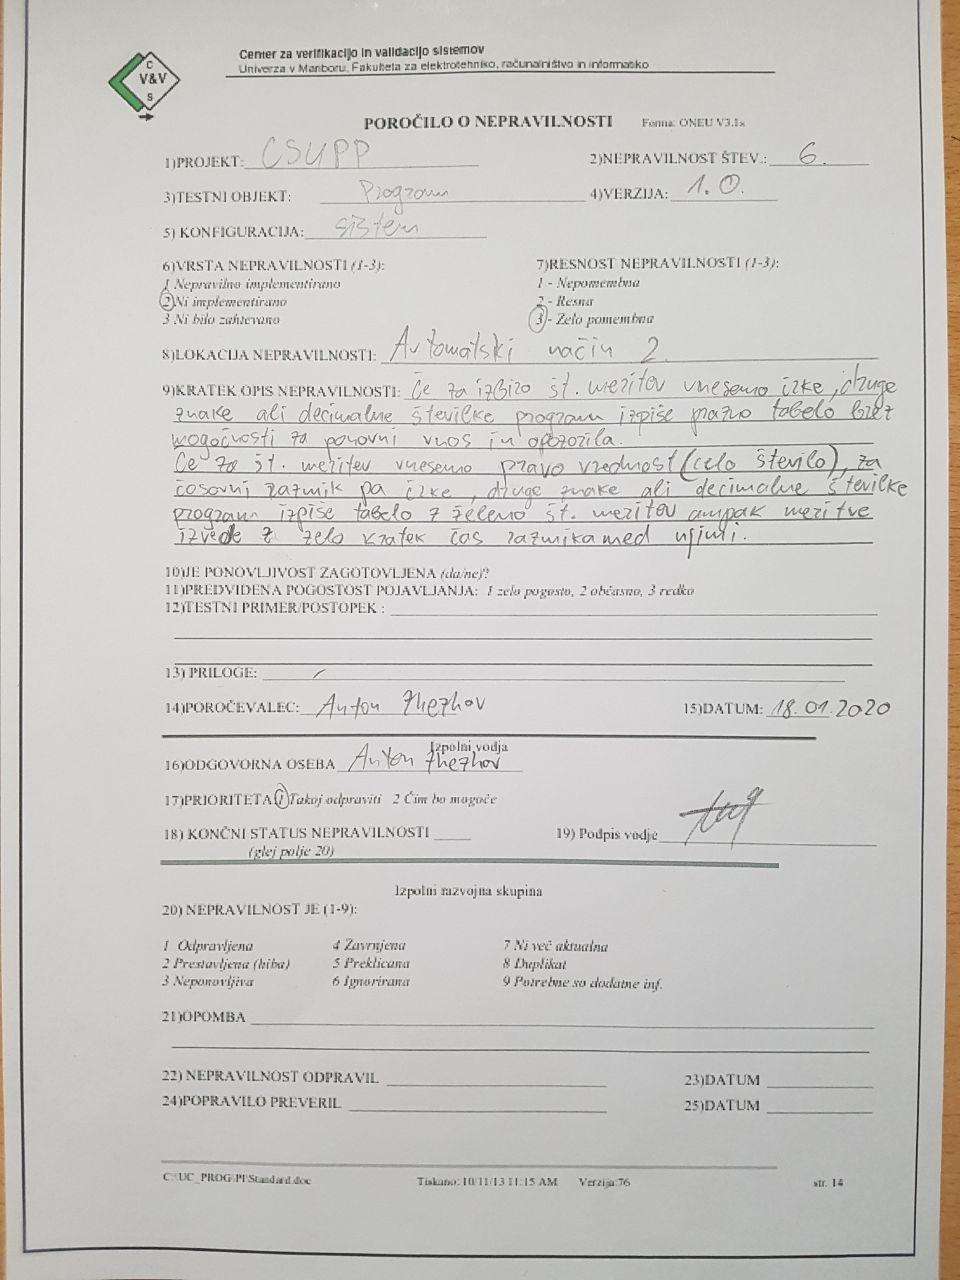 C
V&V
S
Center za verifikacijo in validacijo sistemov
Univerza v Mariboru, Fakulteta za elektrotehniko, računalništvo in informatiko
POROČILO O NEPRAVILNOSTI Forma: ONEU V3.1s
1)PROJEKT: CSUPP 2)NEPRAVILNOST ŠTEV.: 6.
3)TESTNI OBJEKT: Program 4)VERZIJA: 1.0.
5) KONFIGURACIJA: sistem
6)VRSTA NEPRAVILNOSTI (1-3): 7)RESNOST NEPRAVILNOSTI (1-3):
1 Nepravilno implementirano 1 - Nepomembna
2 Ni implementirano 2 - Resna
3 Ni bilo zahtevano 3 - Zelo pomembna
8)LOKACIJA NEPRAVILNOSTI: Avtomatski način 2.
9)KRATEK OPIS NEPRAVILNOSTI: Če za izbiro št. meritev vnesemo črke, druge
znake ali decimalne številke program izpiše prazno tabelo brez
mogočnosti za ponovni vnos in opozorila.
Če za št. meritev vnesemo pravo vrednost (celo število), za
časovni razmik pa črke, druge znake ali decimalne številke
program izpiše tabelo z želeno št. meritev ampak meritve
izvede z zelo kratek čas razmika med njimi.
10)JE PONOVLJIVOST ZAGOTOVLJENA (da/ne)?
11)PREDVIDENA POGOSTOST POJAVLJANJA: 1 zelo pogosto, 2 občasno, 3 redko
12)TESTNI PRIMER/POSTOPEK :
13) PRILOGE: /
14)POROČEVALEC: Anton Zhezhov 15)DATUM: 18.01.2020
Izpolni vodja
16)ODGOVORNA OSEBA Anton Zhezhov
17)PRIORITETA 1 Takoj odpraviti 2 Čim bo mogoče
18) KONČNI STATUS NEPRAVILNOSTI 19) Podpis vodje
(glej polje 20)
Izpolni razvojna skupina
20) NEPRAVILNOST JE (1-9):
1 Odpravljena 4 Zavrnjena 7 Ni več aktualna
2 Prestavljena (hiba) 5 Preklicana 8 Duplikat
3 Neponovljiva 6 Ignorirana 9 Potrebne so dodatne inf.
21)OPOMBA
22) NEPRAVILNOST ODPRAVIL 23)DATUM
24)POPRAVILO PREVERIL 25)DATUM
C:\UC_PROG\PI\Standard.doc Tiskano: 10/11/13 11:15 AM Verzija:76 str. 14